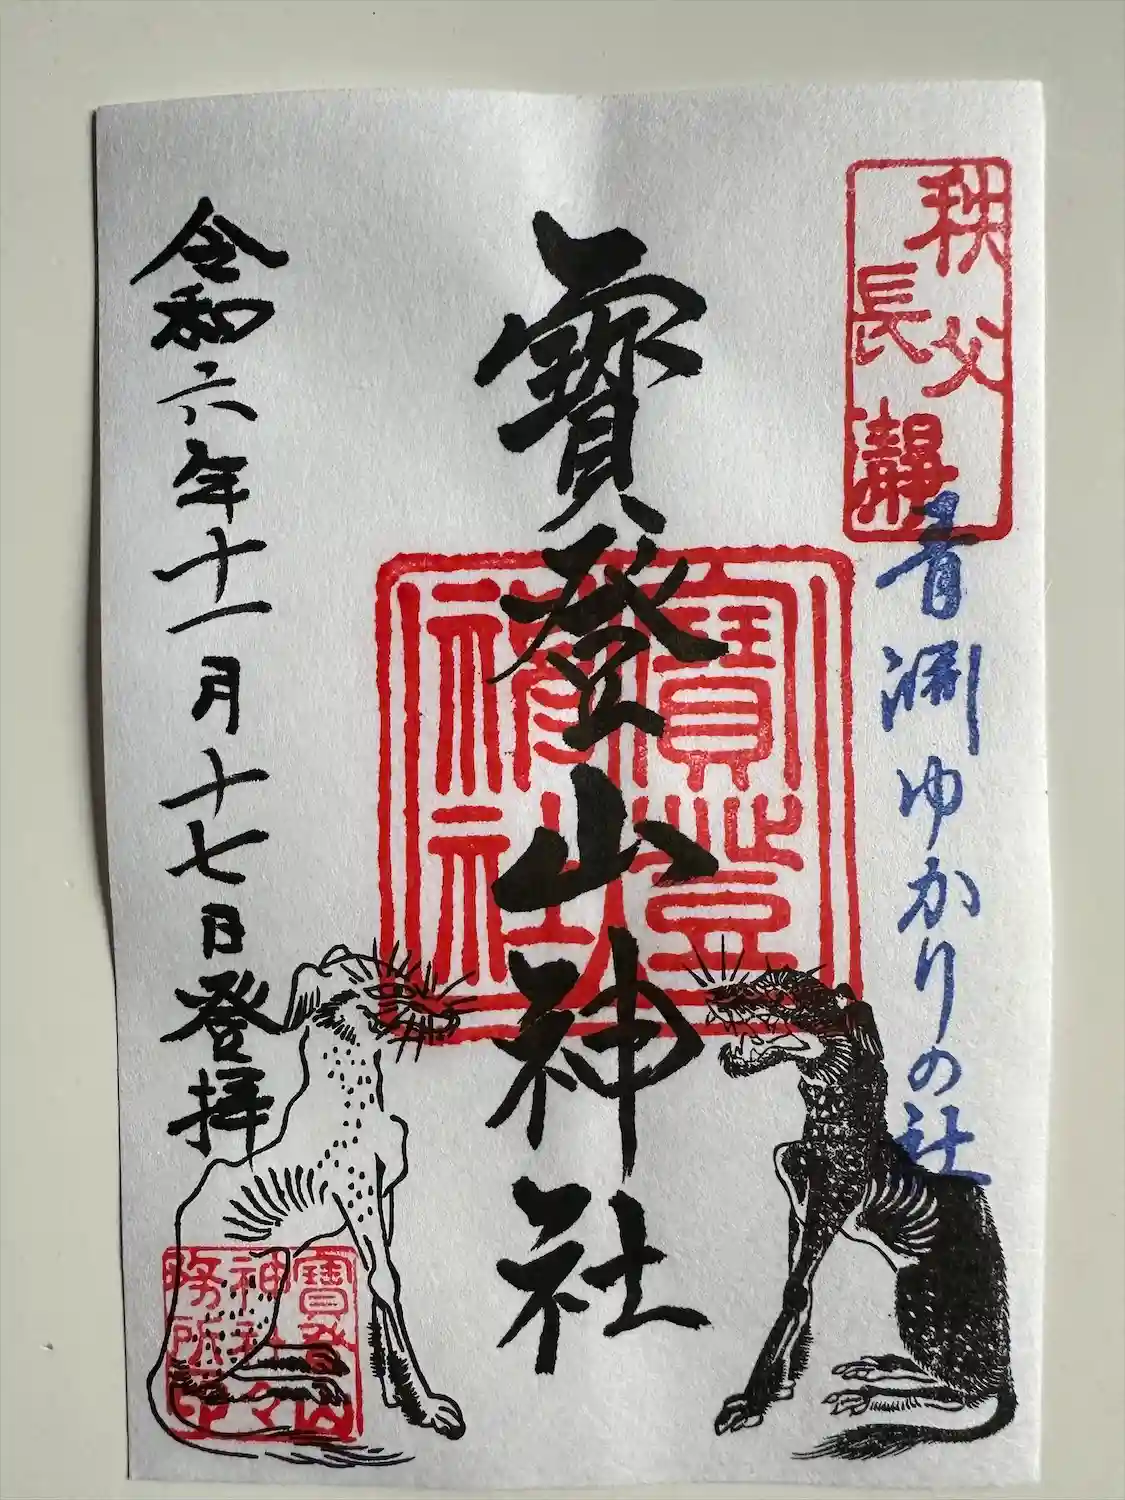 秩父
長瀞
青淵ゆかりの社
寳登山神社
令和六年十一月十七日登拝
寳登山
神社々
務所印